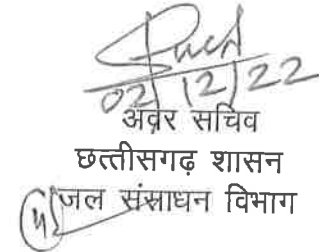 02/12/22
अवर सचिव
छत्तीसगढ़ शासन
जल संसाधन विभाग